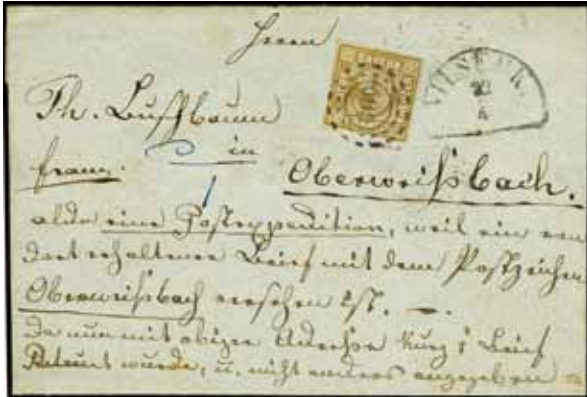 Herrn
VILSECK.
22
4
Ph. Buschbaum
in
franco.
Oberweißbach.
eine Postexpedition, weil ein von
dort erhaltener Brief mit dem Postzeichen
Oberweißbach versehen ist. —.
Da nun mit obiger Adresse Brief
Retour wurde, u. nicht anders angegeben